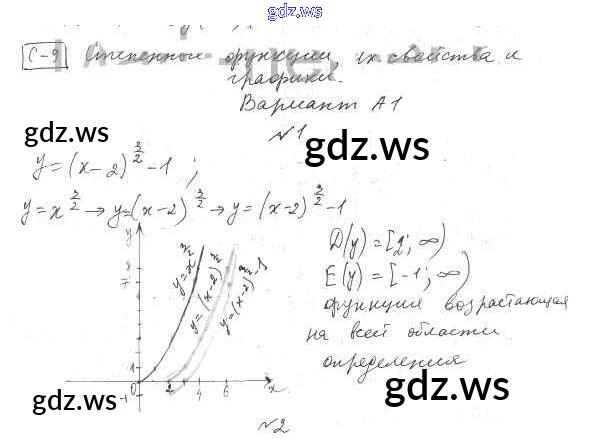 gdz.ws
С-9 Степенные функции, их свойства и
графики.
Вариант А1
№1
gdz.ws
gdz.ws
y=(x-2)^{3/2}-1;
y=x^{3/2}→y=(x-2)^{3/2}→y=(x-2)^{3/2}-1
y
8
7
1
0
-1
2
4
6
x
y=x^{3/2}
y=(x-2)^{3/2}
y=(x-2)^{3/2}-1
D(y)=[2;∞)
E(y)=[-1;∞)
функция возрастающая
на всей области
определения
gdz.ws
gdz.ws
№2